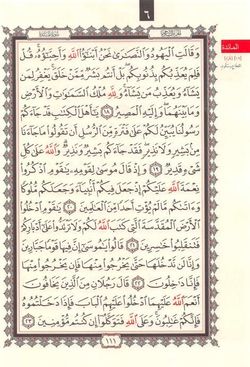 ٦
المائدة
وَقَالَتِ ٱلۡيَهُودُ وَٱلنَّصَٰرَىٰ نَحۡنُ أَبۡنَٰٓؤُاْ ٱللَّهِ وَأَحِبَّٰٓؤُهُۥۚ قُلۡ
فَلِمَ يُعَذِّبُكُم بِذُنُوبِكُمۖ بَلۡ أَنتُم بَشَرٞ مِّمَّنۡ خَلَقَۚ يَغۡفِرُ لِمَن
يَشَآءُ وَيُعَذِّبُ مَن يَشَآءُۚ وَلِلَّهِ مُلۡكُ ٱلسَّمَٰوَٰتِ وَٱلۡأَرۡضِ
وَمَا بَيۡنَهُمَاۖ وَإِلَيۡهِ ٱلۡمَصِيرُ ١٨ يَٰٓأَهۡلَ ٱلۡكِتَٰبِ قَدۡ جَآءَكُمۡ
رَسُولُنَا يُبَيِّنُ لَكُمۡ عَلَىٰ فَتۡرَةٖ مِّنَ ٱلرُّسُلِ أَن تَقُولُواْ مَا جَآءَنَا
مِنۢ بَشِيرٖ وَلَا نَذِيرٖۖ فَقَدۡ جَآءَكُم بَشِيرٞ وَنَذِيرٞۗ وَٱللَّهُ عَلَىٰ كُلِّ
شَيۡءٖ قَدِيرٞ ١٩ وَإِذۡ قَالَ مُوسَىٰ لِقَوۡمِهِۦ يَٰقَوۡمِ ٱذۡكُرُواْ
نِعۡمَةَ ٱللَّهِ عَلَيۡكُمۡ إِذۡ جَعَلَ فِيكُمۡ أَنۢبِيَآءَ وَجَعَلَكُم مُّلُوكٗا
وَءَاتَىٰكُم مَّا لَمۡ يُؤۡتِ أَحَدٗا مِّنَ ٱلۡعَٰلَمِينَ ٢٠ يَٰقَوۡمِ ٱدۡخُلُواْ
ٱلۡأَرۡضَ ٱلۡمُقَدَّسَةَ ٱلَّتِي كَتَبَ ٱللَّهُ لَكُمۡ وَلَا تَرۡتَدُّواْ عَلَىٰٓ أَدۡبَارِكُمۡ
فَتَنقَلِبُواْ خَٰسِرِينَ ٢١ قَالُواْ يَٰمُوسَىٰٓ إِنَّ فِيهَا قَوۡمٗا جَبَّارِينَ
وَإِنَّا لَن نَّدۡخُلَهَا حَتَّىٰ يَخۡرُجُواْ مِنۡهَا فَإِن يَخۡرُجُواْ مِنۡهَا
فَإِنَّا دَٰخِلُونَ ٢٢ قَالَ رَجُلَانِ مِنَ ٱلَّذِينَ يَخَافُونَ
أَنۡعَمَ ٱللَّهُ عَلَيۡهِمَا ٱدۡخُلُواْ عَلَيۡهِمُ ٱلۡبَابَ فَإِذَا دَخَلۡتُمُوهُ
فَإِنَّكُمۡ غَٰلِبُونَۚ وَعَلَى ٱللَّهِ فَتَوَكَّلُوٓاْ إِن كُنتُم مُّؤۡمِنِينَ ٢٣
١١١